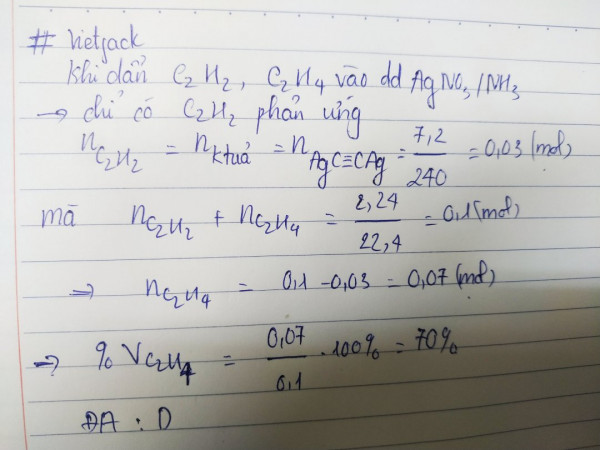 # Vietjack
Khi dẫn C₂H₂, C₂H₄ vào dd AgNO₃/NH₃
→ chỉ có C₂H₂ phản ứng
n_C₂H₂ = n_ktuả = n_AgC≡CAg = 7,2/240 = 0,03 (mol)
mà n_C₂H₂ + n_C₂H₄ = 2,24/22,4 = 0,1 (mol)
⇒ n_C₂H₄ = 0,1 - 0,03 = 0,07 (mol)
→ % V_C₂H₄ = 0,07/0,1 . 100% = 70%
ĐA : D